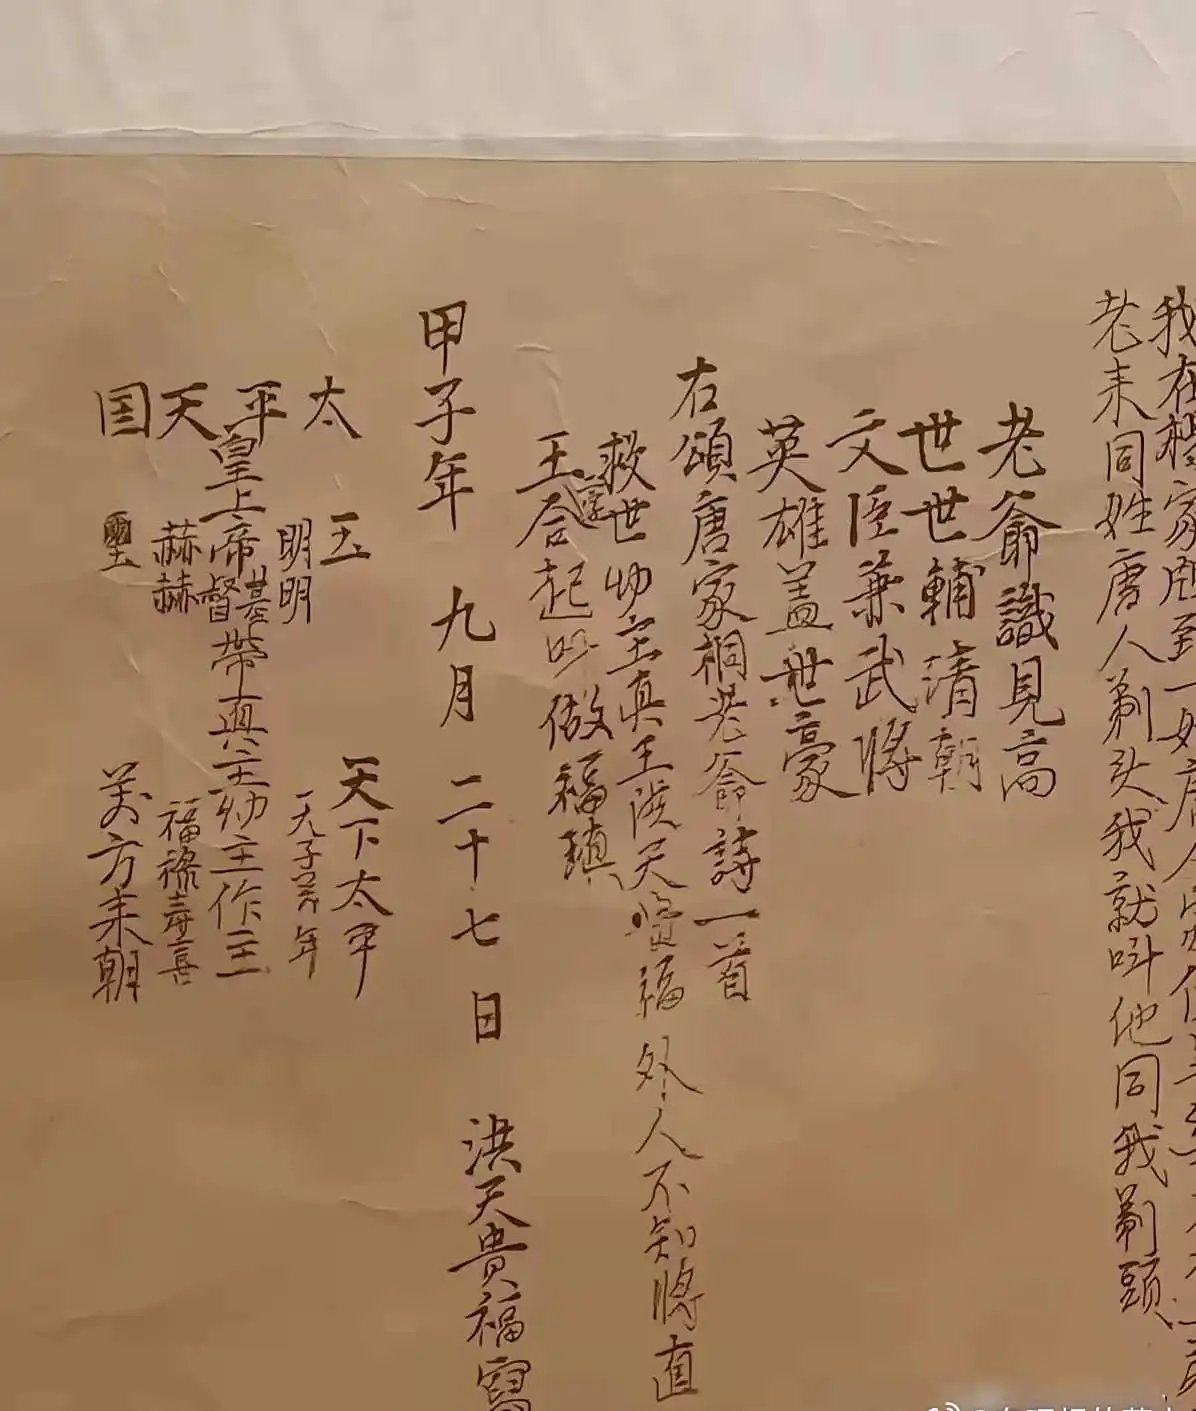 我在
老来同姓唐人剃头我就叫他同我剃頭
老爺識見高
世世輔清朝
文臣兼武將
英雄盖世豪
右頌唐家桐老爺詩一首
救世幼主真王洪天貴福外人不知將直
王合起以做福瑱
字
甲子年 九月 二十七日 洪天貴福寫
太 玉 天下太平
平 明明 天子萬年
皇上帝基督帶真主幼主作主
天 赫赫 福祿壽喜
国 璽 万方来朝